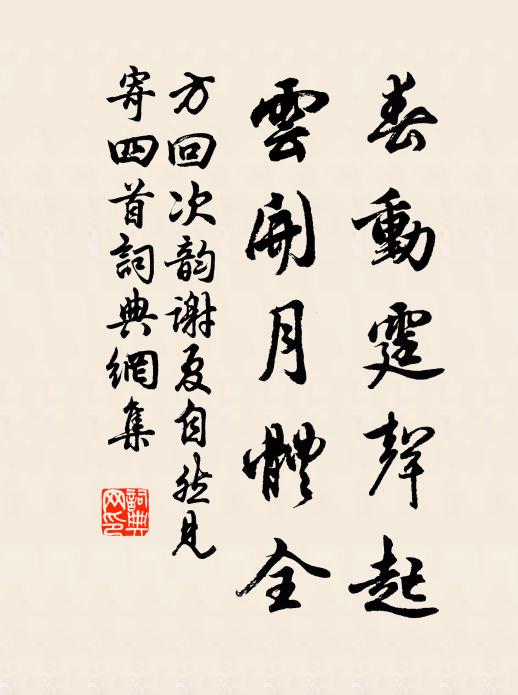 春動霆聲起
雲開月體全
方回次韵謝夏自然見
寄四首詞典網集
詞典
网印